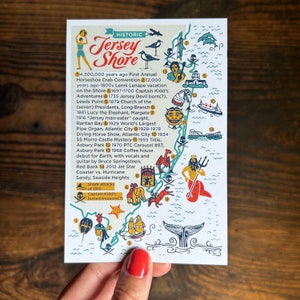 HISTORIC
Jersey
Shore
4,300,000 years ago First Annual
Horseshoe Crab Convention 12,000
years ago-1800s Lenni Lenape vacation
on the Shore 1697-1700 Captain Kidd's
Adventures 1735 Jersey Devil born(?),
Leeds Point 1879 Church (of the
Seven) Presidents, Long Branch
1881 Lucy the Elephant, Margate
1916 "Jersey man-eater" caught,
Raritan Bay 1929 World's Largest
Pipe Organ, Atlantic City 1928-1978
Diving Horse Show, Atlantic City
Morro Castle Mystery Title,
Asbury Park 1970 PTC Carousel #87,
Asbury Park 1968 Coffee house
debut for Earth, with vocals and
guitar by Bruce Springsteen,
Red Bank 2012 Jet Star
Coaster vs. Hurricane
Sandy, Seaside Heights
Shark attacks
of 1916
Captain Kidd's
buried treasure?